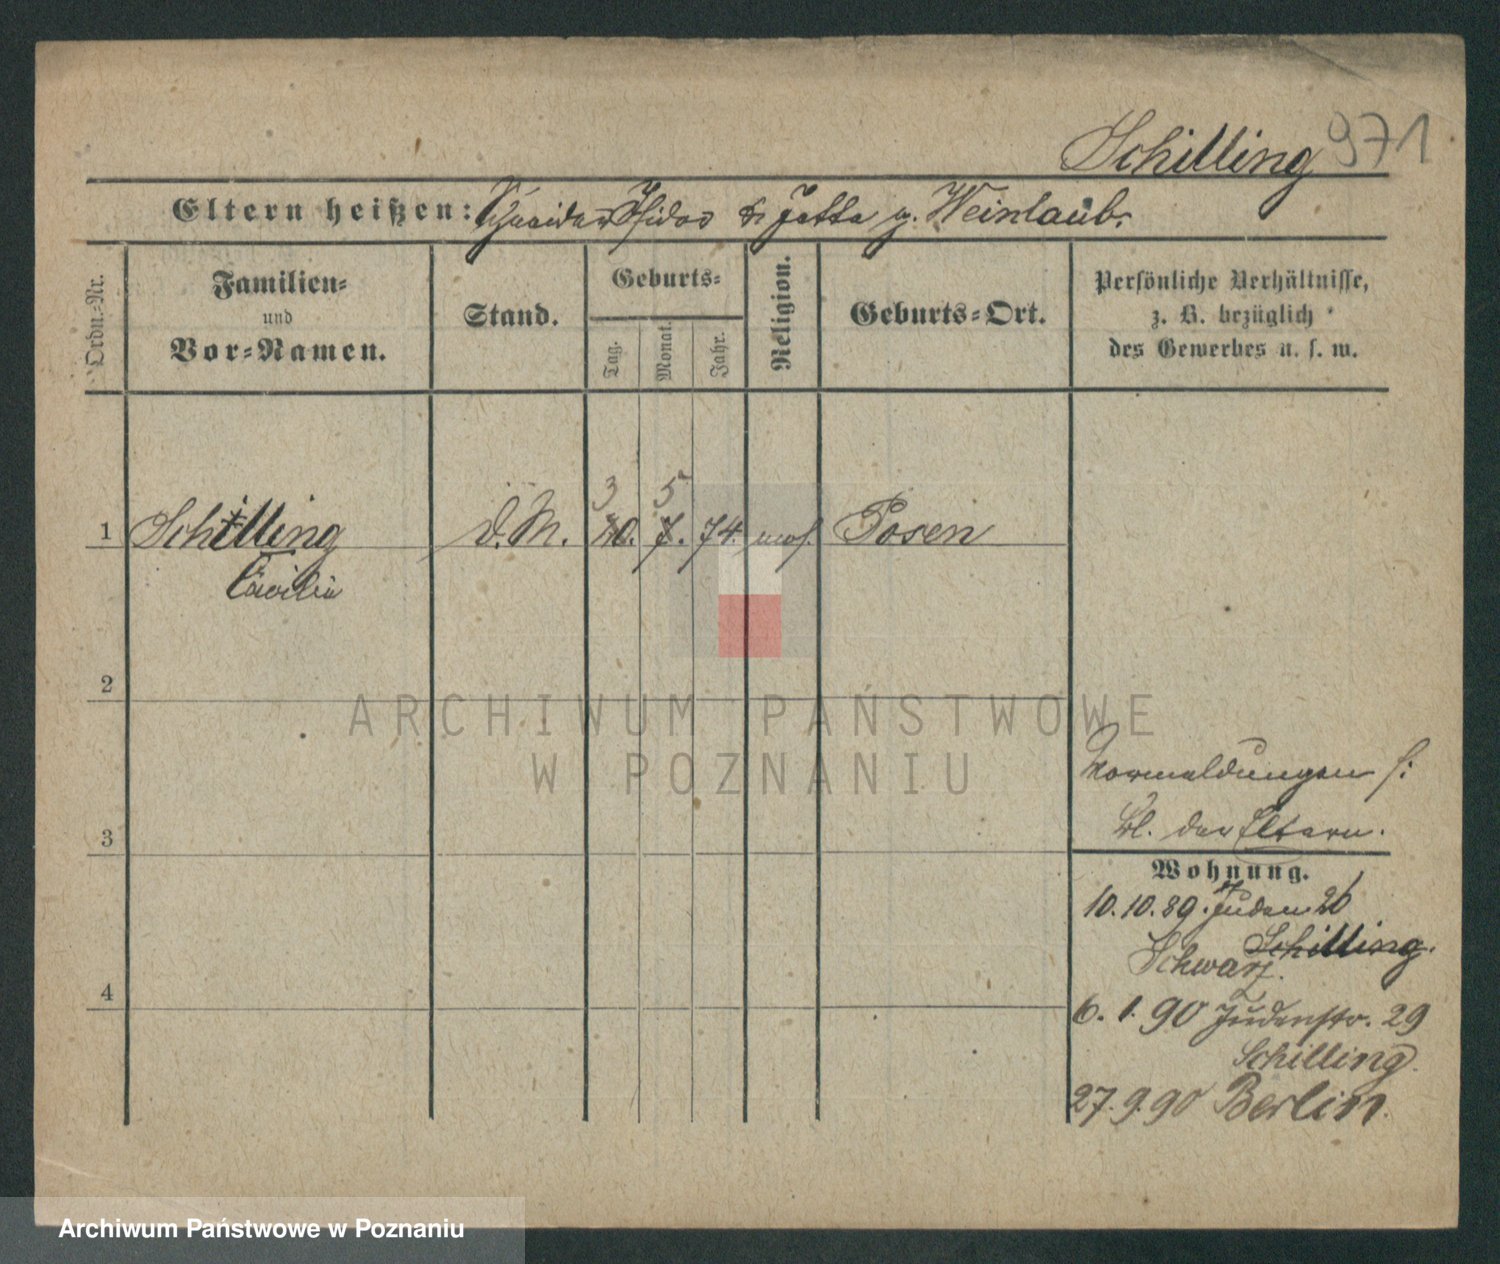 Schilling 971
Eltern heißen: Schneider Isidor & Jette g. Weinlaub.
Ordn.-Nr.
Familien-
und
Vor-Namen.
Stand.
Geburts-
Tag.
Monat.
Jahr.
Religion.
Geburts-Ort.
Persönliche Verhältnisse,
z. B. bezüglich
des Gewerbes u. s. w.
3 5
1 Schilling d. M. 10. 7. 74. mos. Posen
Cäcilie
2
ARCHIWUM PAŃSTWOWE
W POZNANIU
Vormeldungen s:
Bl. der Eltern.
3
Wohnung.
10.10.89. Juden 26
Schilling.
Schwarz.
4
6. 1. 90 Judenstr. 29
Schilling.
27.9.90 Berlin.
Archiwum Państwowe w Poznaniu